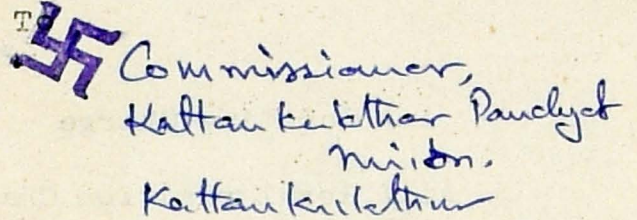 To
Commissioner,
Kattankulathur Panchayat
Union.
Kattankulathur